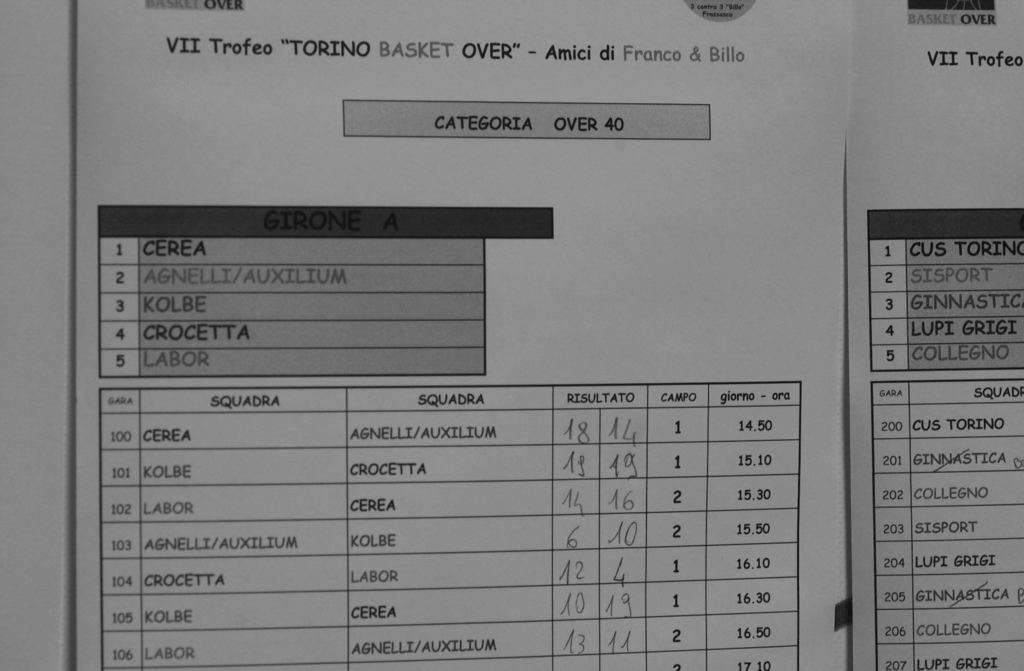 BASKET OVER
3 contro 3 "Billo"
Frossasco
VII Trofeo "TORINO BASKET OVER" - Amici di Franco & Billo
CATEGORIA OVER 40
GIRONE A
1 CEREA
2 AGNELLI/AUXILIUM
3 KOLBE
4 CROCETTA
5 LABOR
GARA SQUADRA SQUADRA RISULTATO CAMPO giorno - ora
100 CEREA AGNELLI/AUXILIUM 18 14 1 14.50
101 KOLBE CROCETTA 19 1 15.10
102 LABOR CEREA 14 16 2 15.30
103 AGNELLI/AUXILIUM KOLBE 6 10 2 15.50
104 CROCETTA LABOR 12 4 1 16.10
105 KOLBE CEREA 10 19 1 16.30
106 LABOR AGNELLI/AUXILIUM 13 11 2 16.50
17.10
BASKET OVER
VII Trofeo
1 CUS TORINO
2 SISPORT
3 GINNASTICA
4 LUPI GRIGI
5 COLLEGNO
GARA SQUADR
200 CUS TORINO
201 GINNASTICA
202 COLLEGNO
203 SISPORT
204 LUPI GRIGI
205 GINNASTICA
206 COLLEGNO
207 LUPI GRIGI